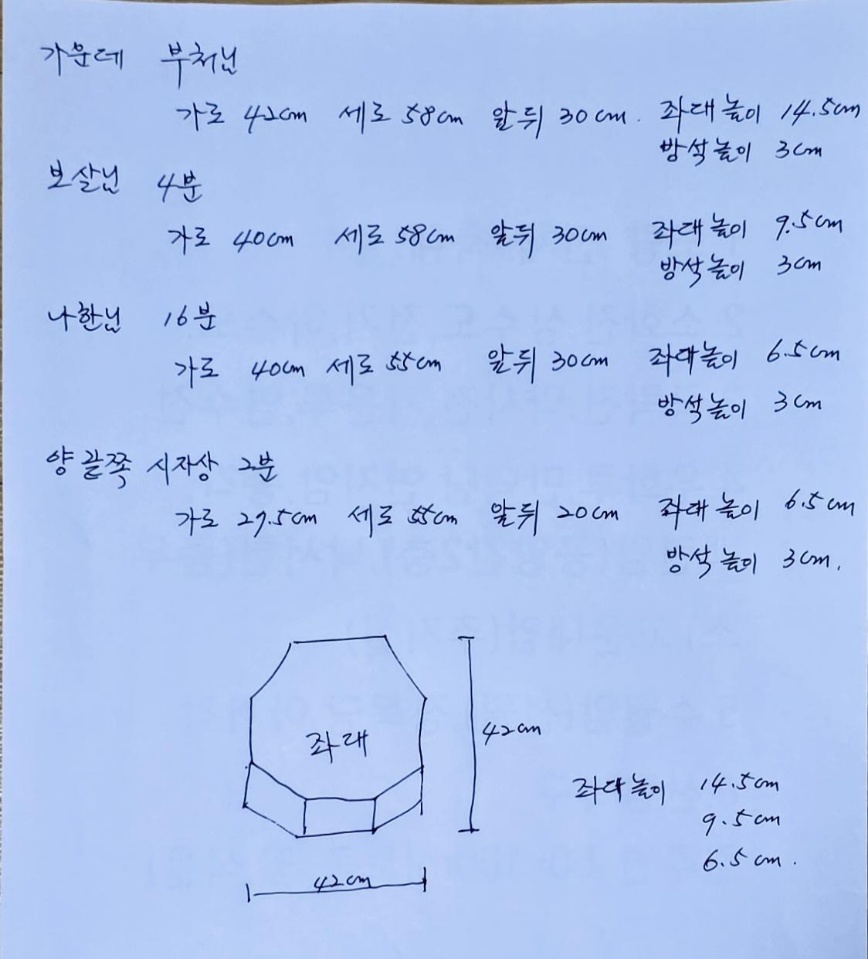 가운데 부처님
가로 42cm 세로 58cm 앞뒤 30cm. 좌대높이 14.5cm
방석높이 3cm
보살님 4분
가로 40cm 세로 58cm 앞뒤 30cm 좌대높이 9.5cm
방석높이 3cm
나한님 16분
가로 40cm 세로 55cm 앞뒤 30cm 좌대높이 6.5cm
방석높이 3cm
양끝쪽 시자상 2분
가로 27.5cm 세로 55cm 앞뒤 20cm 좌대높이 6.5cm
방석높이 3cm.
좌대
42cm
42cm
좌대높이 14.5cm
9.5cm
6.5cm.